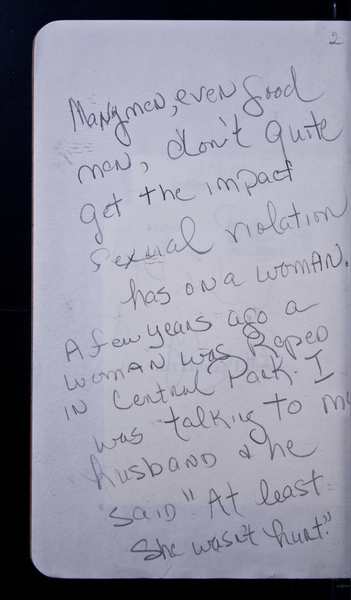 2
Many men, even good
men, don't quite
get the impact
sexual violation
has on a woman.
A few years ago a
woman was Raped
in Central Park. I
was talking to my
husband & he
said "At least
She wasn't hurt."